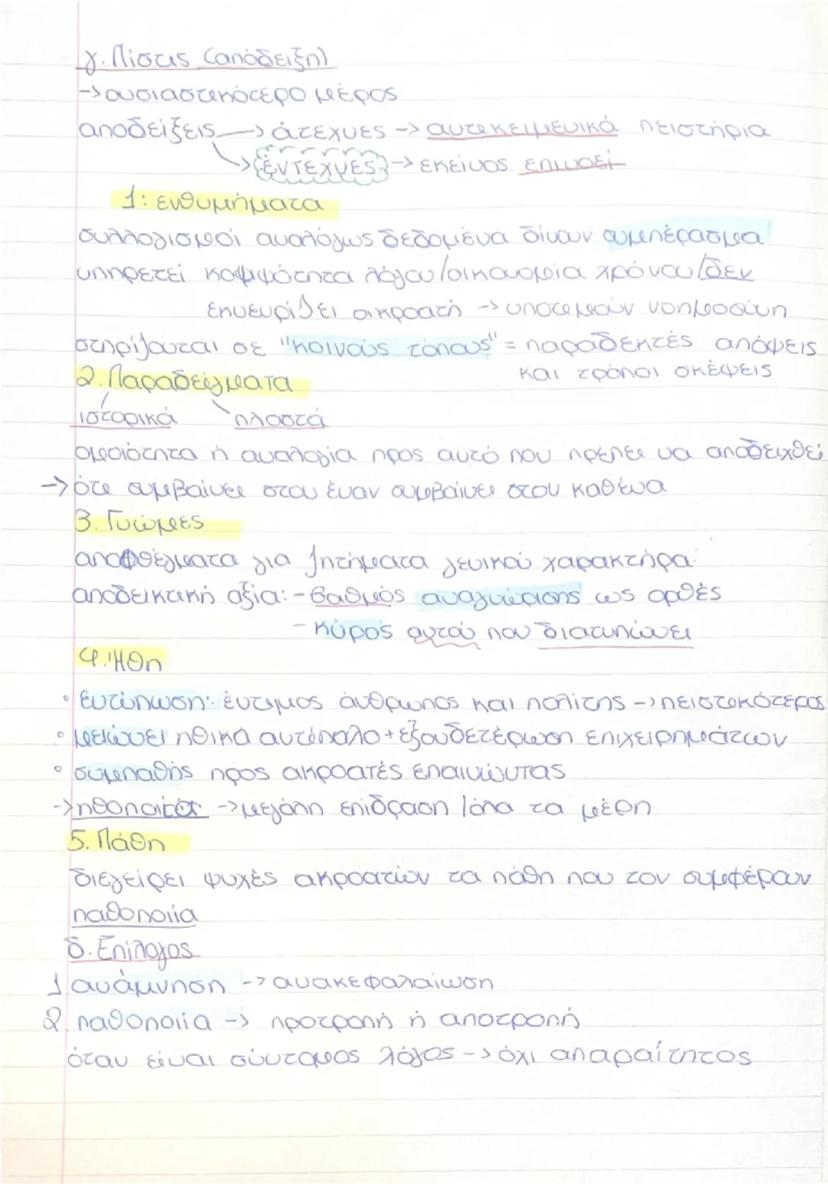 γ. Πίστις (απόδειξη)
-> ουσιαστικότερο μέρος
αποδείξεις -> άτεχνες -> αντικειμενικά πειστήρια
-> έντεχνες -> εκείνος επινοεί
1: ενθυμήματα
συλλογισμοί αναλόγως δεδομένα δίνουν συμπέρασμα
υπηρετεί κομψότητα λόγου/οικονομία χρόνου/δεν
εκνευρίζει ακροατή -> υποτιμούν νοημοσύνη
στηρίζονται σε "κοινούς τόπους" = παραδεκτές απόψεις
και τρόποι σκέψεις
2. Παραδείγματα
ιστορικά πλαστά
ομοιότητα ή αναλογία προς αυτό που πρέπει να αποδειχθεί
-> ότι συμβαίνει στον έναν συμβαίνει στον καθένα
3. Γνώμες
αποφθέγματα για ζητήματα γενικού χαρακτήρα
αποδεικτική αξία: - βαθμός αναγνώρισης ως ορθές
- κύρος αυτού που διατυπώνει
4. Ήθη
• εντύπωση: έντιμος άνθρωπος και πολίτης -> πειστικότερος
• μειώνει ηθικά αντίπαλο + εξουδετέρωση επιχειρημάτων
• συμπαθής προς ακροατές επαινώντας
-> ηθοποιία -> μεγάλη επίδραση / όλα τα μέρη
5. Πάθη
διεγείρει ψυχές ακροατών τα πάθη που τον συμφέρουν
παθοποιία
δ. Επίλογος
1 ανάμνηση -> ανακεφαλαίωση
2 παθοποιία -> προτροπή ή αποτροπή
όταν είναι σύντομος λόγος -> όχι απαραίτητος